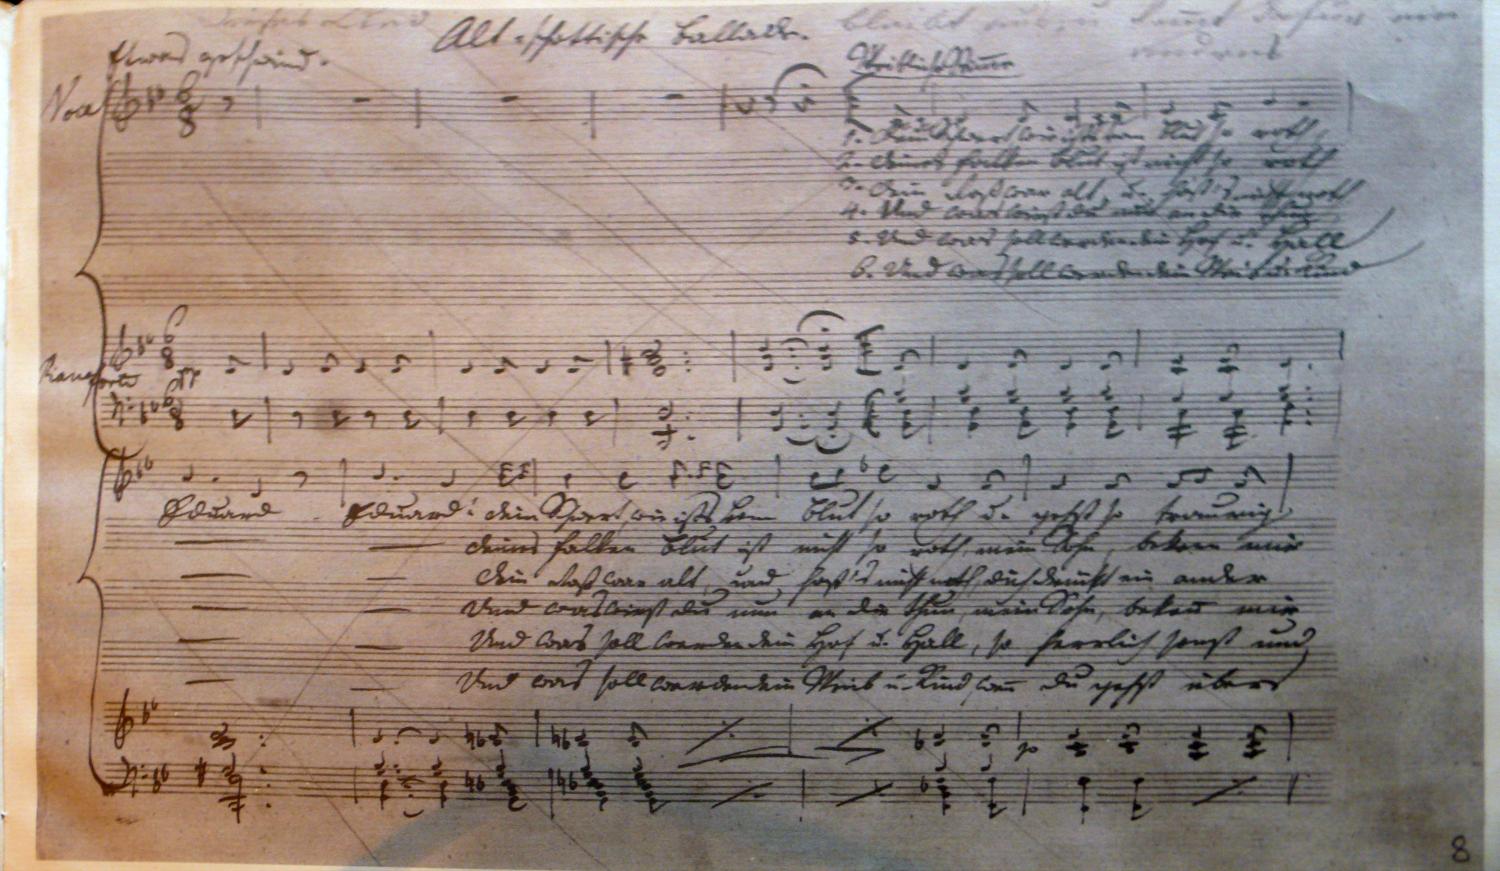 Alt-schottische Ballade.
Etwas geschwind.
Weibliche Stimme
1. Dein Schwert wie ists von Blut so roth,
2. deines Falken Blut ist nicht so roth
3. dein Roß war alt, u. hast's nicht noth
4. Und was wirst du nun an dir thun
5. Und was soll werden dein Hof u. Hall
6. Und was soll werden dein Weib u. Kind
pp
Eduard Eduard! dein Schwert, wie ists von Blut so roth u. gehst so traurig
deines Falken Blut ist nicht so roth, mein Sohn, beken mir
dein Roß war alt, und hast's nicht noth, dich drückt ein ander
Und was wirst du nun an dir thun, mein Sohn, beken mir
Und was soll werden dein Hof u. Hall, so herrlich sonst und
Und was soll werden dein Weib u. Kind wen du gehst über
8